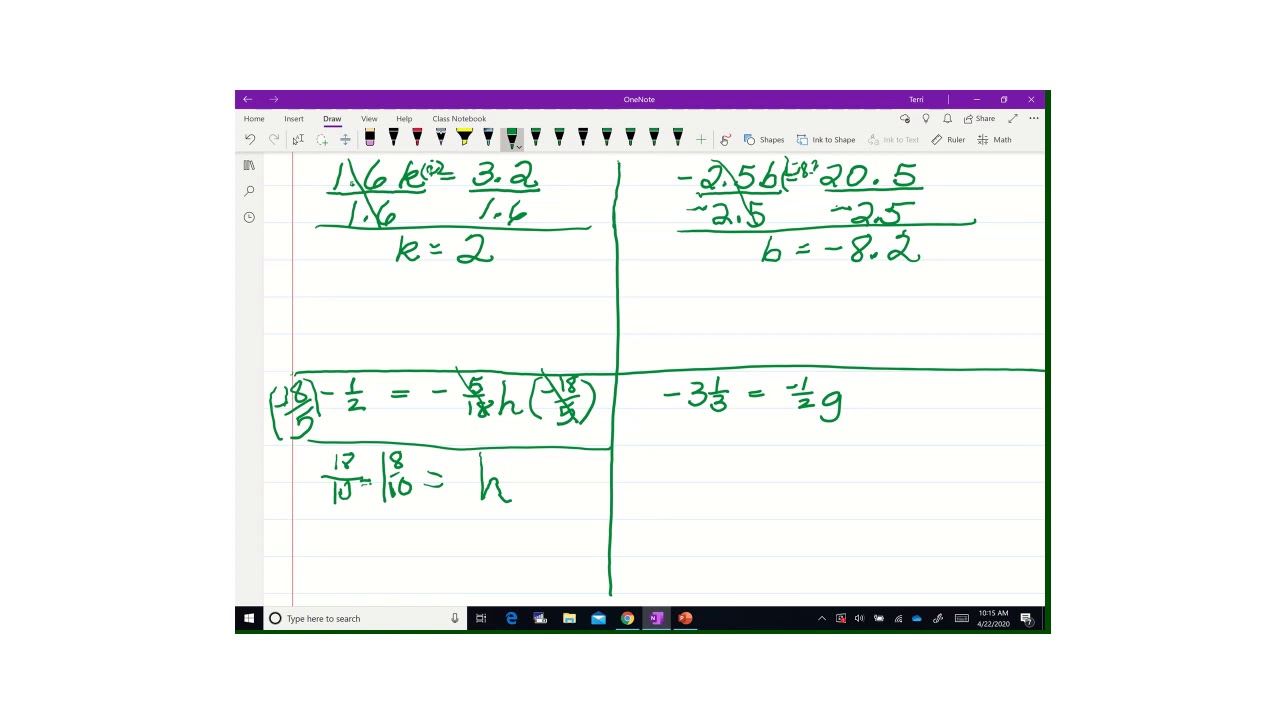 OneNote
Terri
Home Insert Draw View Help Class Notebook
Share
Shapes Ink to Shape Ink to Text Ruler Math
1.6 k = 3.2
1.6 1.6
k = 2
-2.5b = 20.5
-2.5 -2.5
b = -8.2
(-18/5) - 1/2 = - 5/18 h (-18/5)
18/10 = 1 8/10 = h
-3 1/3 = -1/2 g
Type here to search
10:15 AM
4/22/2020